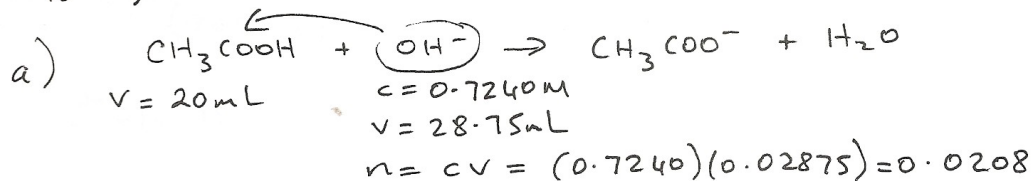 a) CH₃COOH + OH⁻ → CH₃COO⁻ + H₂O
v = 20mL c = 0.7240M
v = 28.75mL
n = cv = (0.7240)(0.02875) = 0.0208